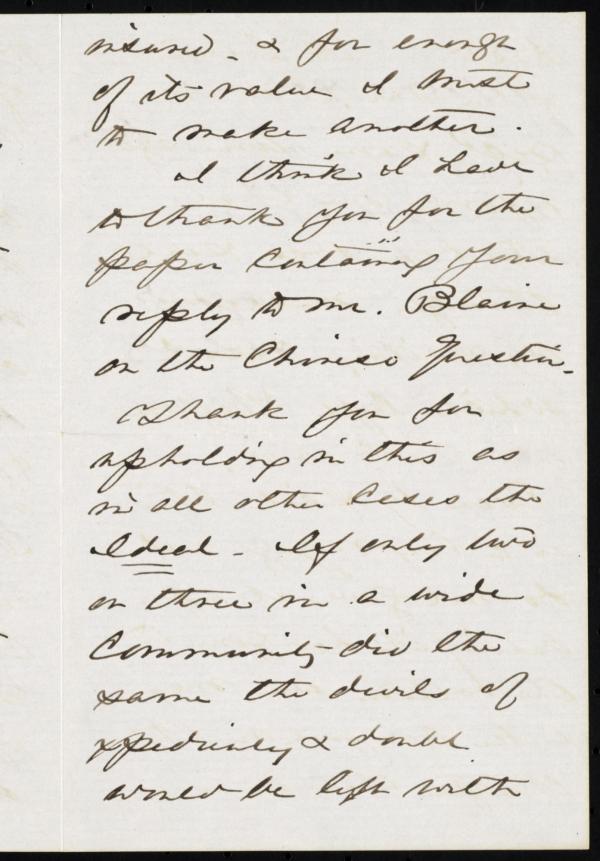 insured - & for enough
of its value I trust
to make another.
I think I have
to thank you for the
paper containing your
reply to Mr. Blaine
on the Chinese Question.
Thank you for
upholding in this as
in all other cases the
Ideal - If only two
or three in a wide
Community did the
same the devils of
xpediency & doubt
would be left with